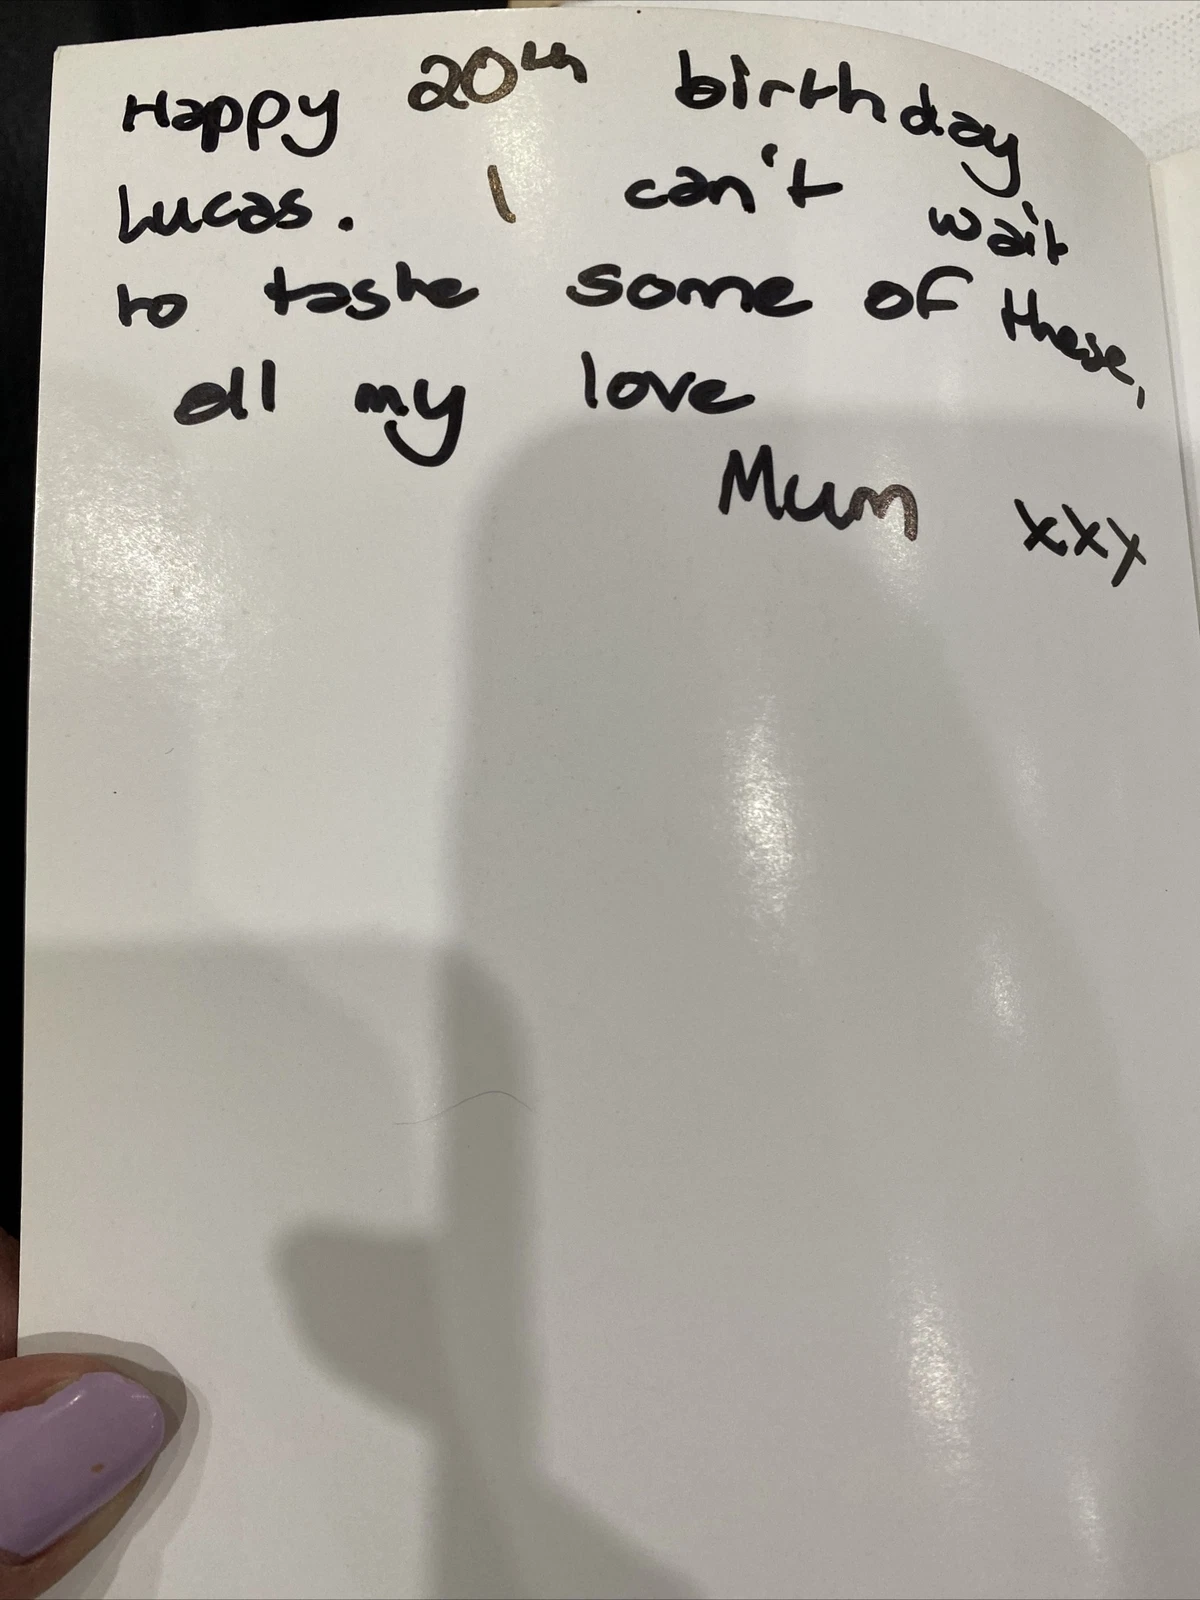 Happy 20th birthday
Lucas. I can't wait
to taste some of these,
all my love
Mum xxx